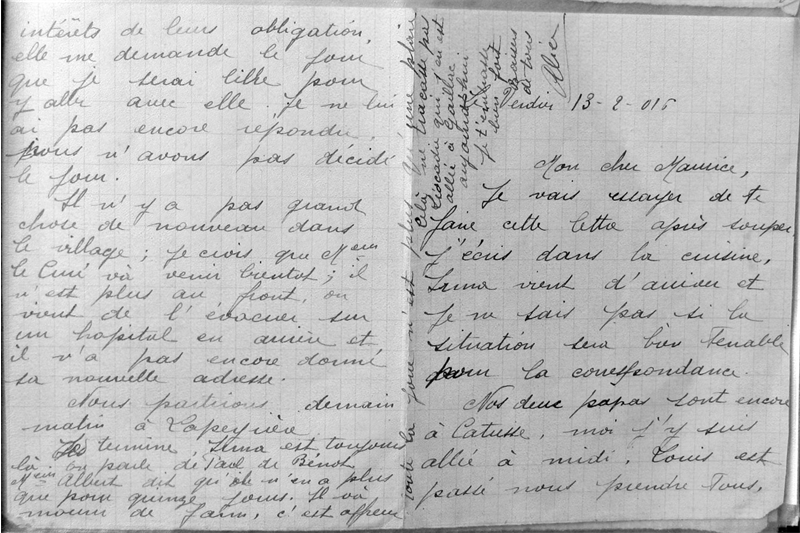 intérêts de leurs obligation,
elle me demande le jour
que je serai libre pour
y aller avec elle. Je ne lui
ai pas encore répondu,
nous n'avons pas décidé
le jour.
Il n'y a pas grand
chose de nouveau dans
le village ; je crois que Mr
le Curé và venir bientot ; il
n'est plus au front, on
vient de l'évacuer sur
un hopital en arrière et
il n'a pas encore donné
sa nouvelle adresse.
Nous partirons demain
matin à Lapeyrière.
Je termine, Irma est toujours
là on parle de Paul de Bénot
Albert dit qu'ils n'en a plus
que pour quinze jours. Il va
mourir de faim, c'est affreux
toute la joue n'est plus qu'une plaie
celà ne tracasse pas
Léocadie qui en est
allée à Gaillac
aujourd'hui
Je t'embrasse
bien fort
Baisers
de tous
Alice
13-2-015
Mon cher Maurice,
Je vais essayer de te
faire cette lettre après souper
J'écris dans la cuisine,
Irma vient d'arriver et
je ne sais pas si la
situation sera bien tenable
pour la correspondance.
Nos deux papas sont encore
à Catusse, moi j'y suis
allée à midi. Louis est
passé nous prendre tous,